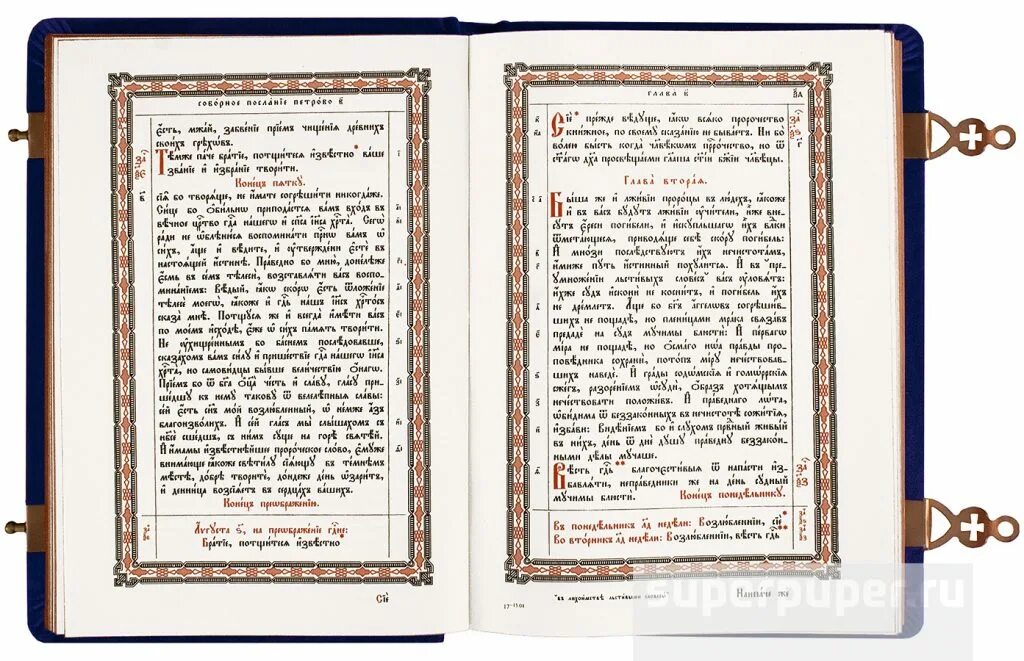 Собо́рное посла́нїе петро́во в҃
є҆́сть, мжа́й, забве́нїе прїе́мъ чище́нїѧ дре́внихъ
свои́хъ грѣхѡ́въ.
Тѣ́мже па́че бра́тїе, потщи́тесѧ и҆звѣ́стно * ва́ше
зва́нїе и҆ и҆збра́нїе твори́ти.
Коне́цъ пѧткꙋ̀.
сїѧ̑ бо творѧ́ще, не и҆́мате согрѣши́ти никогда́же.
Си́це бо ѻ҆би́льнѡ припода́стсѧ ва́мъ вхо́дъ въ
вѣ́чное црⷭ҇тво гдⷭ҇а на́шегѡ и҆ сп҃са і҆и҃са хрⷭ҇та̀. Сегѡ̀
ра́ди не ѡ҆блѣню́сѧ воспомина́ти при́снѡ ва́мъ ѡ҆
си́хъ, а҆́ще и҆ вѣ́дите, и҆ ᲂу҆твержде́ни є҆стѐ въ
настоѧ́щей и҆́стинѣ. Пра́ведно бо мню̀, доне́лѣже
є҆́смь въ се́мъ тѣлесѝ, возставлѧ́ти ва́съ воспо-
мина́нїемъ: Вѣ́дый, ꙗ҆́кѡ ско́рѡ є҆́сть ѿложе́нїе
тѣлесѐ моегѡ̀, ꙗ҆́коже и҆ гдⷭ҇ь на́шъ і҆и҃съ хрⷭ҇то́съ
сказа̀ мнѣ̀. Потщꙋ́сѧ же и҆ всегда̀ и҆мѣ́ти ва́съ
по мое́мъ и҆схо́дѣ, є҆́же ѡ҆ си́хъ па́мѧть твори́ти.
Не ᲂу҆хищрє́ннымъ бо ба́снемъ послѣ́довавше,
сказа́хомъ ва́мъ си́лꙋ и҆ прише́ствїе гдⷭ҇а на́шегѡ і҆и҃са
хрⷭ҇та̀, но самови́дцы бы́вше вели́чествїю ѻ҆́нагѡ.
Прїе́мъ бо ѿ бг҃а ѻ҆ц҃а̀ че́сть и҆ сла́вꙋ, гла́сꙋ при-
ше́дшꙋ къ немꙋ̀ таково́мꙋ ѿ велелѣ́пныѧ сла́вы:
се́й є҆́сть сн҃ъ мо́й возлю́бленный, ѡ҆ не́мже а҆́зъ
бл҃гоизво́лихъ. И҆ се́й гла́съ мы̀ слы́шахомъ съ
нб҃сѐ сше́дшъ, съ ни́мъ сꙋ́ще на горѣ̀ свѧтѣ́й.
И҆ и҆́мамы и҆звѣ́стнѣйшее прⷪ҇ро́ческое сло́во, є҆мꙋ́же
внима́юще ꙗ҆́коже свѣти́лꙋ сїѧ́ющꙋ въ те́мнѣмъ
мѣ́стѣ, до́брѣ творитѐ, до́ндеже де́нь ѡ҆зари́тъ,
и҆ денни́ца возсїѧ́етъ въ сердца́хъ ва́шихъ.
Коне́цъ преѡбраже́нїю.
А҆́ѵгꙋста ѕ҃, на преѡбраже́нїе гдⷭ҇не:
Бра́тїе, потщи́тесѧ и҆звѣ́стно *
Сїѐ
Глава̀ в҃
Сїѐ пре́жде вѣ́дꙋще, ꙗ҆́кѡ всѧ́ко проро́чество
кни́жное, по своемꙋ̀ сказа́нїю не быва́етъ. Ни бо
во́лею бы́сть когда̀ чл҃вѣ́комъ прⷪ҇ро́чество, но ѿ
ст҃а́гѡ дх҃а просвѣща́еми глаго́лаша ст҃і́и бж҃їи чл҃вѣ́цы.
Глава̀ втора́ѧ.
Бы́ша же и҆ лжи́вїи проро́цы въ лю́дехъ, ꙗ҆́коже
и҆ въ ва́съ бꙋ́дꙋтъ лжи́вїи ᲂу҆чи́телїе, и҆̀же вне-
сꙋ́тъ є҆́реси поги́бели, и҆ и҆скꙋ́пльшагѡ и҆̀хъ влⷣки
ѿмета́ющесѧ, приводѧ́ще себѣ̀ ско́рꙋ поги́бель:
И҆ мно́зи послѣ́дствꙋютъ и҆́хъ нечистота́мъ,
и҆́миже пꙋ́ть и҆́стинный похꙋ́литсѧ. И҆ въ пре-
ꙋмноже́нїи льсти́выхъ слове́съ * ва́съ ᲂу҆ловѧ́тъ:
и҆́хже сꙋ́дъ и҆сконѝ не косни́тъ, и҆ поги́бель и҆́хъ
не дре́млетъ. А҆́ще бо бг҃ъ а҆́гг҃лѡвъ согрѣши́в-
шихъ не пощадѣ̀, но плени́цами мра́ка свѧза́въ
предадѐ на сꙋ́дъ мꙋ́чимы блюстѝ: И҆ пе́рвагѡ
мі́ра не пощадѣ̀, но ѻ҆сма́го нѡ́а пра́вды про-
повѣ́дника сохранѝ, пото́пъ мі́рꙋ нече́ствовав-
шихъ наведѐ. И҆ гра́ды содѡ́мскїѧ и҆ гомѡ́ррскїѧ
сже́гъ, разоре́нїемъ ѡ҆сꙋдѝ, ѻ҆́бразъ хотѧ́щымъ
нече́ствовати положи́въ. И҆ пра́веднаго лѡ́та,
ѡ҆би́дима ѿ беззако́нныхъ въ нечистотѣ̀ сожи́тїѧ,
и҆зба́ви: Видѣ́нїемъ бо и҆ слꙋ́хомъ првⷣный живы́й
въ ни́хъ, де́нь ѿ днѐ дꙋ́шꙋ пра́веднꙋ беззако́н-
ными дѣ́лы мꙋ́чаше.
Вѣ́сть гдⷭ҇ь ** благочести̑выѧ ѿ напа́сти и҆з-
бавлѧ́ти, непра́ведники же на де́нь сꙋ́дный
мꙋ́чимы блюстѝ. Коне́цъ понедѣ́льникꙋ.
Въ понедѣ́льникъ л҃д недѣ́ли: Возлю́бленнїи, сїѐ *
Во вто́рникъ л҃д недѣ́ли: Возлю́бленнїи, вѣ́сть гдⷭ҇ь **
17-1501
* въ лихои́мствѣ льсти́выми словесы̀
Наипа́че же
superpuper.ru